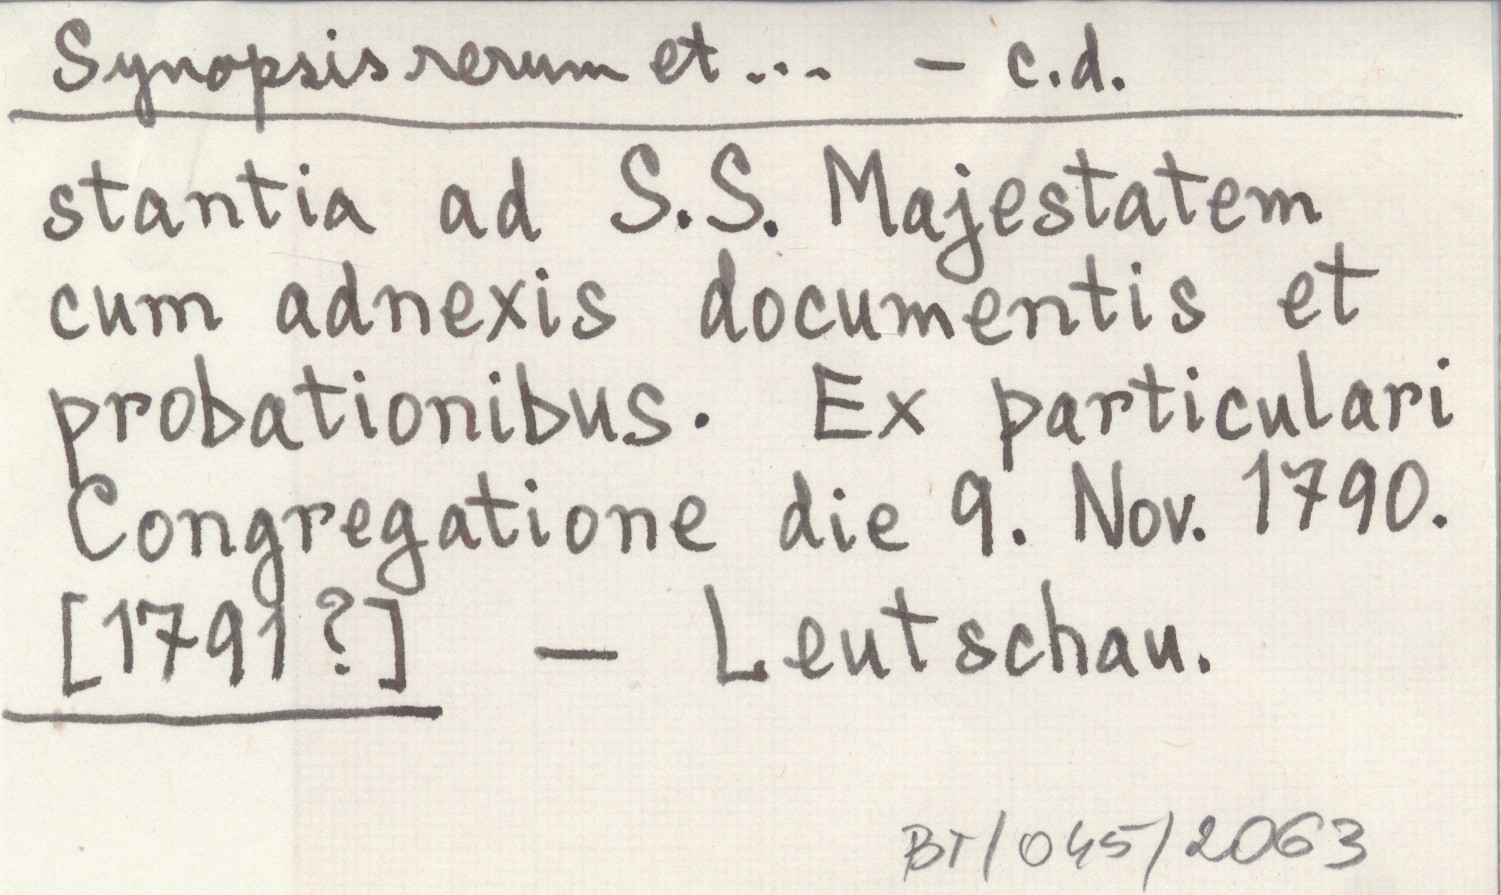 Synopsis rerum et ... - c.d.
stantia ad S.S. Majestatem
cum adnexis documentis et
probationibus. Ex particulari
Congregatione die 9. Nov. 1790.
[1791?] — Leutschau.
BT/045/2063